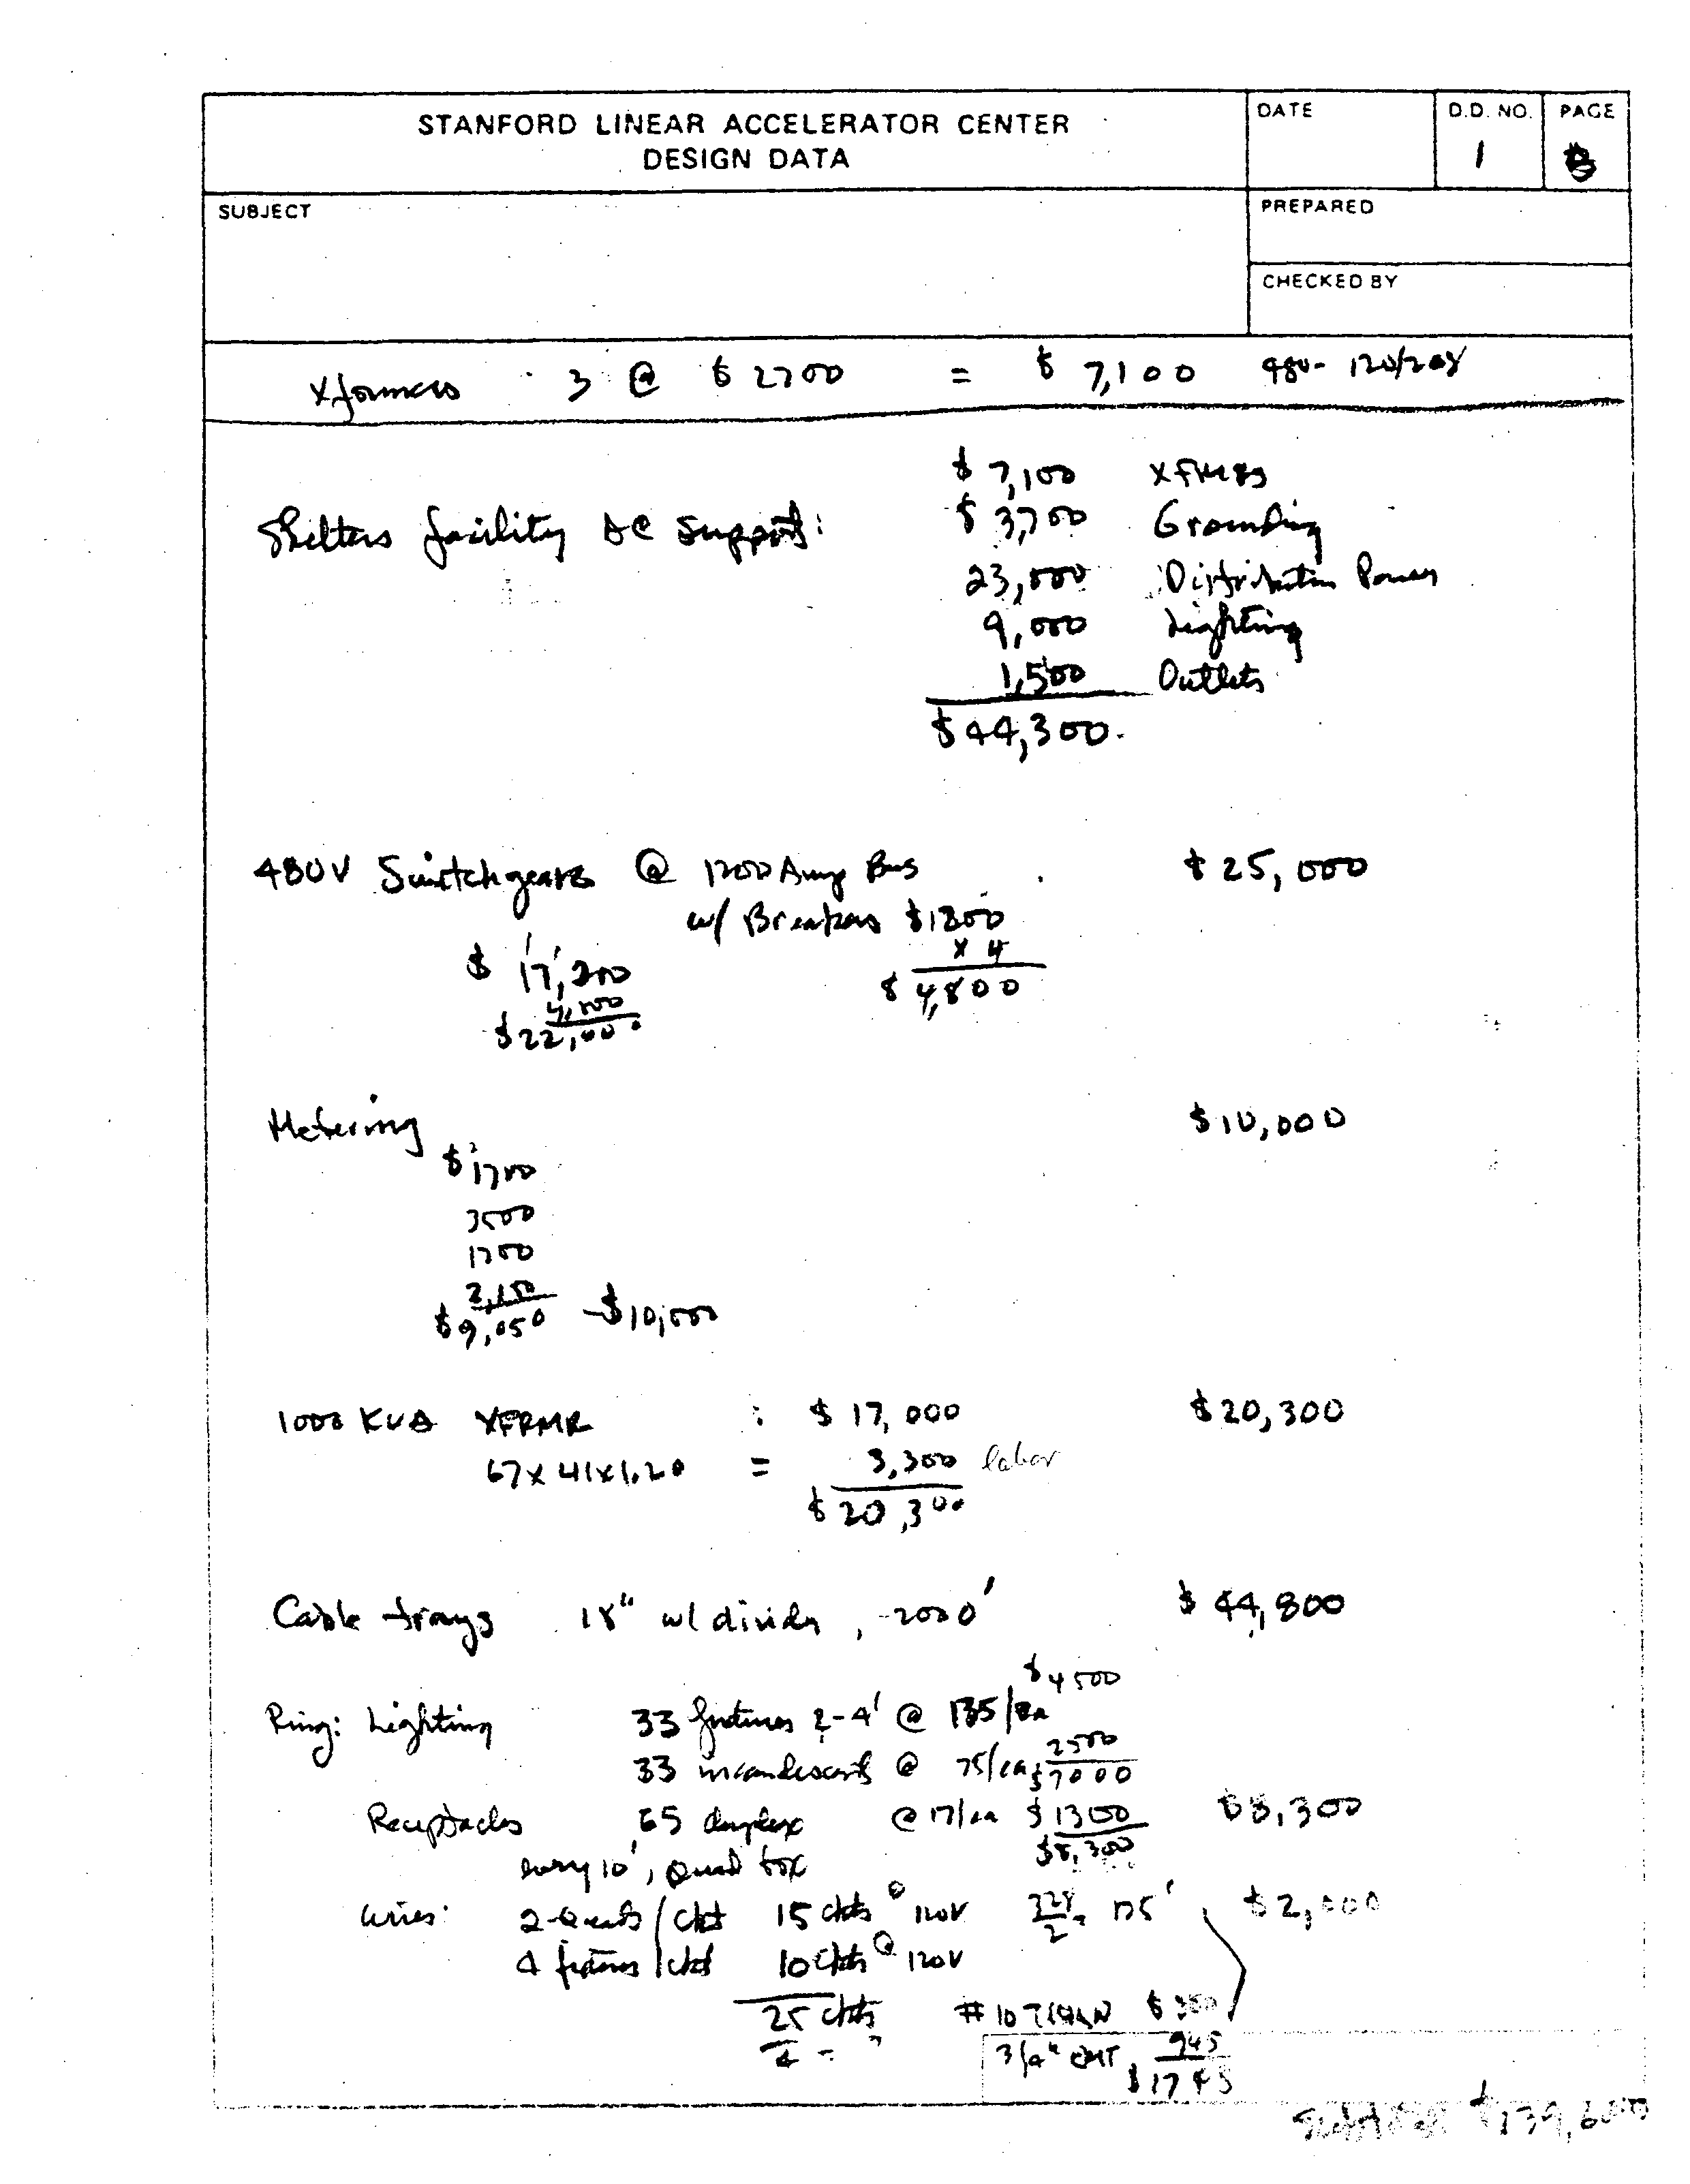 STANFORD LINEAR ACCELERATOR CENTER
DESIGN DATA
DATE
D.D. NO.
1
PAGE
SUBJECT
PREPARED
CHECKED BY
Xformers 3 @ $ 2700 = $ 7,100 480- 120/208
$ 7,100 XFMRS
Shelters facility AC support: $ 3,700 Grounding
23,000 Distribution Power
9,000 Lighting
1,500 Outlets
$44,300.
480V Switchgears @ 1200 Amp Bus $ 25,000
w/ Breakers $1200
x 4
$ 4,800
$ 17,200
4,800
$22,000
Metering $10,000
$1700
3500
1700
2,150
$9,050 - $10,000
1000 KVA XFRMR : $ 17,000 $20,300
67 x 41 x 1.20 = 3,300 labor
$ 20,300
Cable trays 18" w/ divider, 2000' $ 44,800
$4500
Ring: Lighting 33 fixtures 2-4' @ 135/ea
33 incandescents @ 75/ea 2500
$7000
Receptacles 65 duplex @ 17/ea $1300 $8,300
$8,300
every 10', quad box
wires: 2-quads/ckt 15 ckts @ 120V 175' $2,000
4 fixtures/ckt 10 ckts @ 120V
25 ckts
4 =
#10 THHN
3/4" EMT 945
$1745
Subtotal $139,600